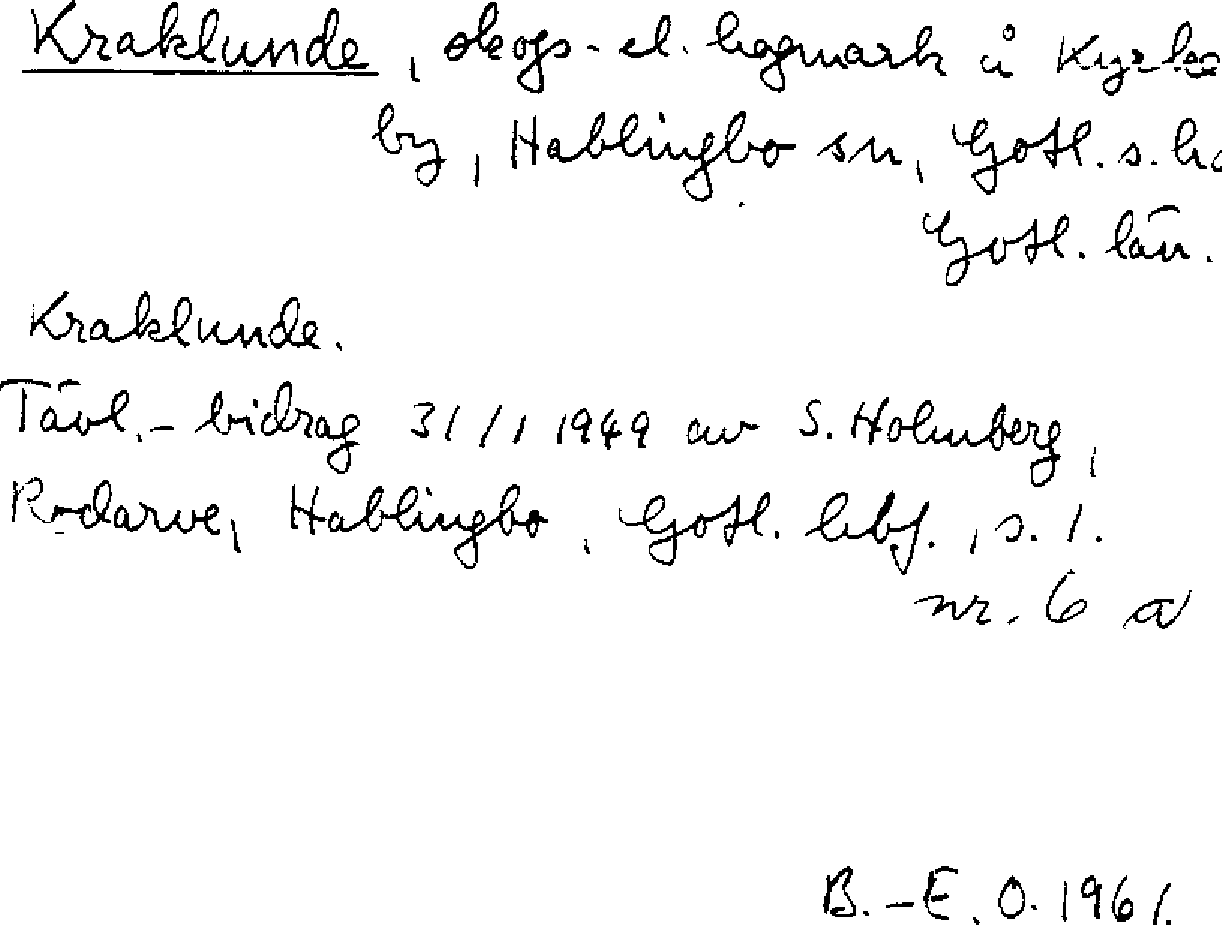 Kraklunde, skogs- el. hagmark å Kyrke
by, Hablingbo sn, Gotl. s. hd
Gotl. län.
Kraklunde.
Tävl.- bidrag 31/1 1949 av S. Holmberg,
Rodarve, Hablingbo, Gotl. lbf., s. 1.
nr. 6 a
B.-E. O. 1961.